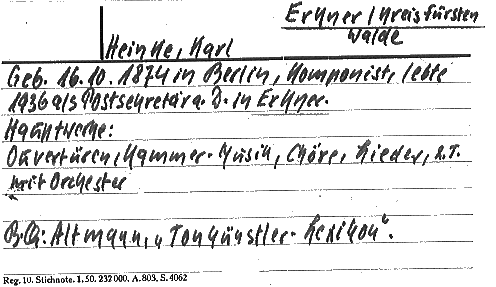 Erkner/Kreis Fürsten
walde
Heinke, Karl
Geb. 16.10.1874 in Berlin, Komponist, lebte
1936 als Postsekretär a. D. in Erkner.
Hauptwerke:
Ouvertüren, Kammer-Musik, Chöre, Lieder, z.T.
mit Orchester
B.Q: Altmann, „Tonkünstler-Lexikon“.
Reg. 10. Stichnote. 1. 50. 232000. A. 803. S. 4062